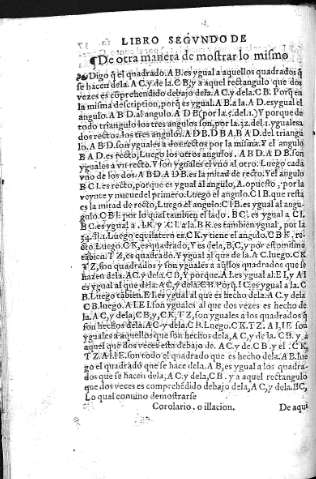 LIBRO SEGVNDO DE
¶De otra manera de mostrar lo mismo
Digo q̃ el quadrado. A B. es ygual a aquellos quadrados q̃
se hacen dela. A C, y de la. C B, y a aquel rectangulo que dos
vezes es cõprehendido debajo dela. A C, y dela. C B. Porq̃ en
la misma descriptiõ, porq̃ es ygual. A B. a la. A D. es ygual el
angulo. A B D. al angulo. A D B (por la. 5. del. 1.) Y porque de
todo triangulo los tres angulos son, por la. 32. del. 1. yguales a
dos rectos, los tres angulos. A D B. D B A. B A D. del triangu
lo. A B D. son yguales a dos rectos por la misma. Y el angulo
B A D. es recto, Luego los otros angulos. A B D. A D B. son
yguales a vn recto. Y son yguales el vno al otro. Luego cada
vno de los dos. A B D. A D B. es la mitad de recto. Y el angulo
B C I. es recto, porque es ygual al angulo, A. opuesto, por la
veynte y nueue del primero. Luego el angulo. C I B. que resta
es la mitad de recto, Luego el angulo. C I B. es ygual al angu-
lo. C B I. por lo qual tambien el lado. B C. es ygual a C I.
B C. es ygual a. I K. y C I. a la. B K. es tambien ygual, por la
34. Luego equilatero es. C K. y tiene el angulo. C B K. re
cto. Luego. C K, es quadrado, Y es dela, B C, y por esto mismo
tãbien. T Z, es quadrado. Y ygual al que de la. A C. luego. C K.
T Z, son quadrados y son yguales a aq̃llos quadrados que se
hazen dela. A C. y dela. C B, Y porque. A I. es ygual al. E I, y A I
es ygual al que dela. A C, y dela. C B. Porq̃. I C. es ygual a la. C
B. Luego tãbien. E I. es ygual al que es hecho dela. A C, y dela
C B. luego. A I. E I. son yguales al que dos vezes es hecho de
la. A C, y dela, C B, y, C K, T Z, son yguales a los quadrados q̃
son hechos dela. A C. y dela. C B. Luego. C K. T Z. A I, I E. son
yguales a aquellos que son hechos dela, A C, y dela. C B. y a
aquel que dos vezes esta debajo de. A C. y de. C B. y el. C K,
T Z. A I. I E. son todo el quadrado que es hecho dela. A B. lue
go el quadrado que se hace dela. A B, es ygual a los quadra-
dos que se hacen dela, A C, y dela, C B. y a aquel rectangulo
que dos vezes es comprehẽdido debajo dela, A C, y dela. B C,
Lo qual conuino demostrarse
Corolario. o illacion.
De aqui